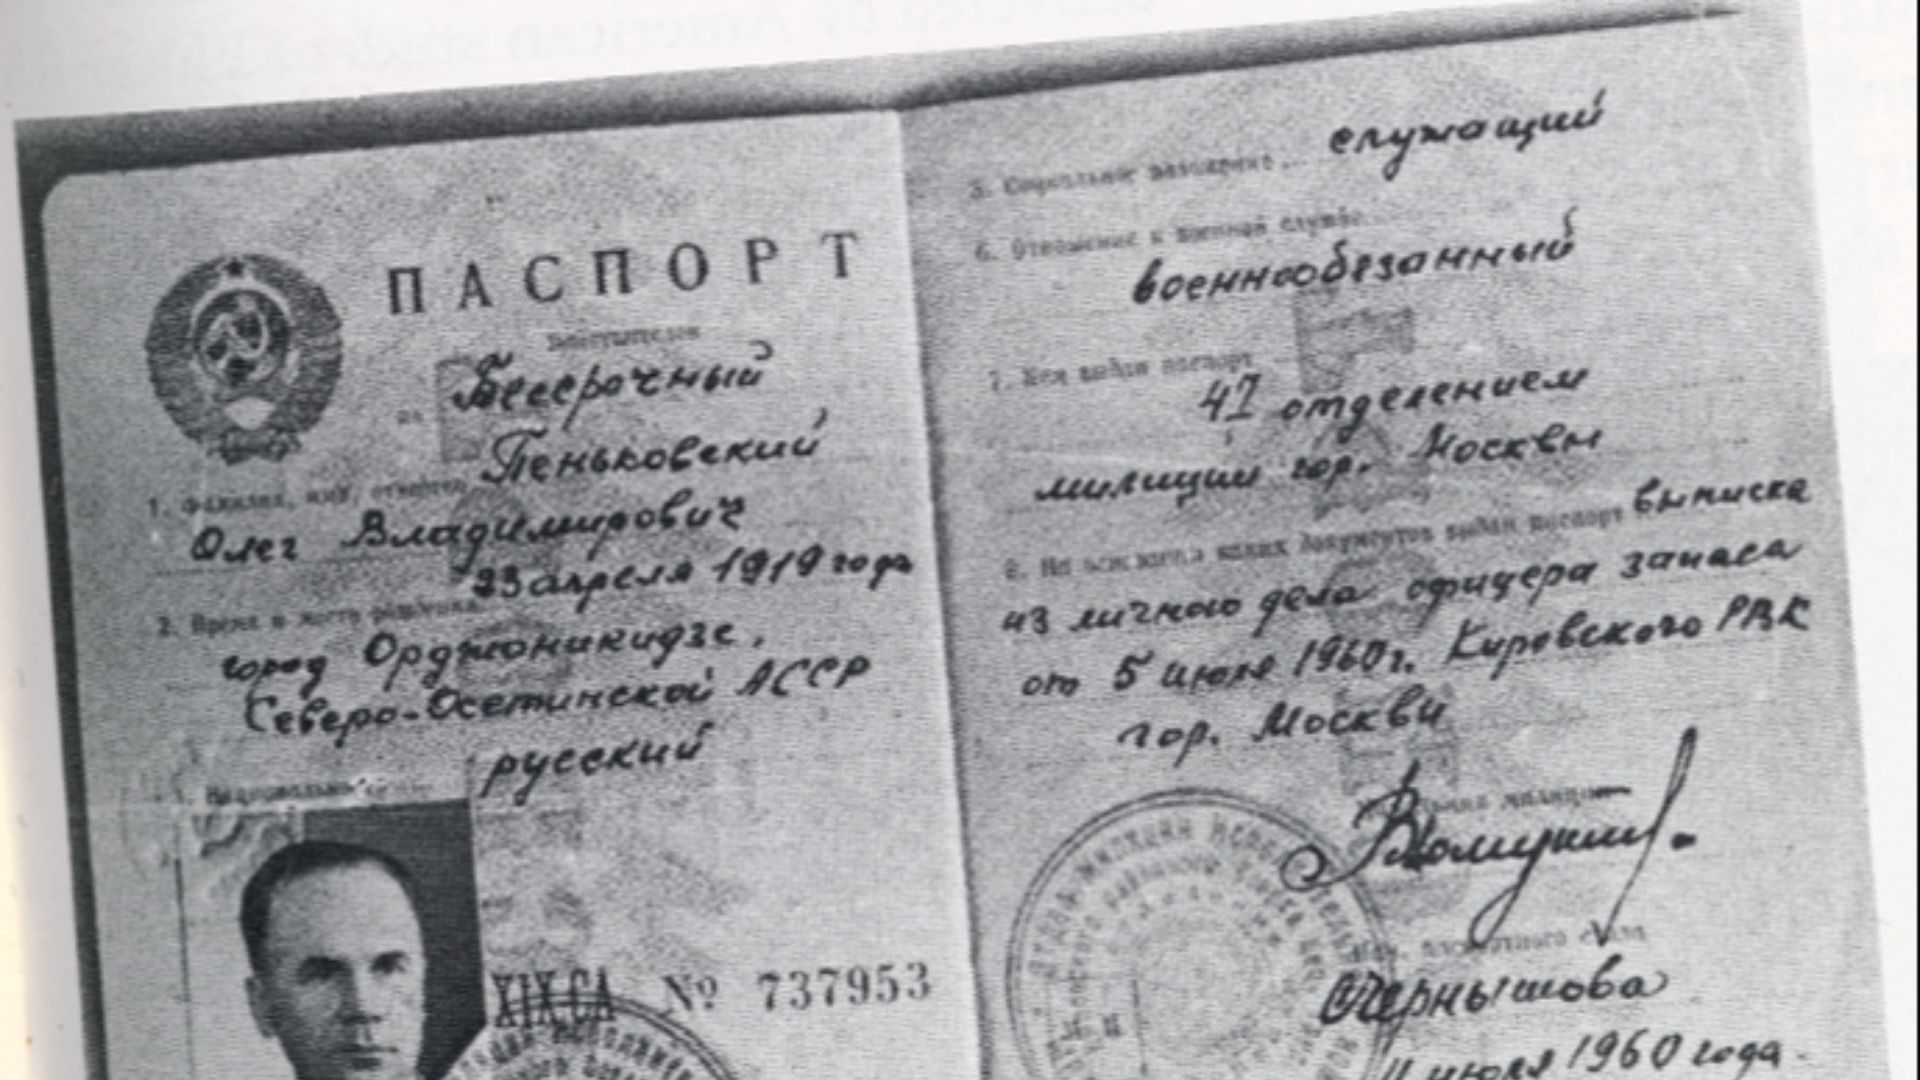 ПАСПОРТ
Бессрочный
1. Фамилия, имя, отчество Пеньковский
Олег Владимирович
23 апреля 1919 года
2. Время и место рождения
город Орджоникидзе,
Северо-Осетинской АССР
русский
Национальность
XIX СА № 737953
5. Социальное положение служащий
6. Отношение к военной службе
военнообязанный
7. Кем выдан паспорт
41 отделением
милиции гор. Москвы
8. На основании каких документов выдан паспорт выписка
из личного дела офицера запаса
от 5 июля 1960 г. Кировского РВК
гор. Москвы
Чернышова
11 июля 1960 года.